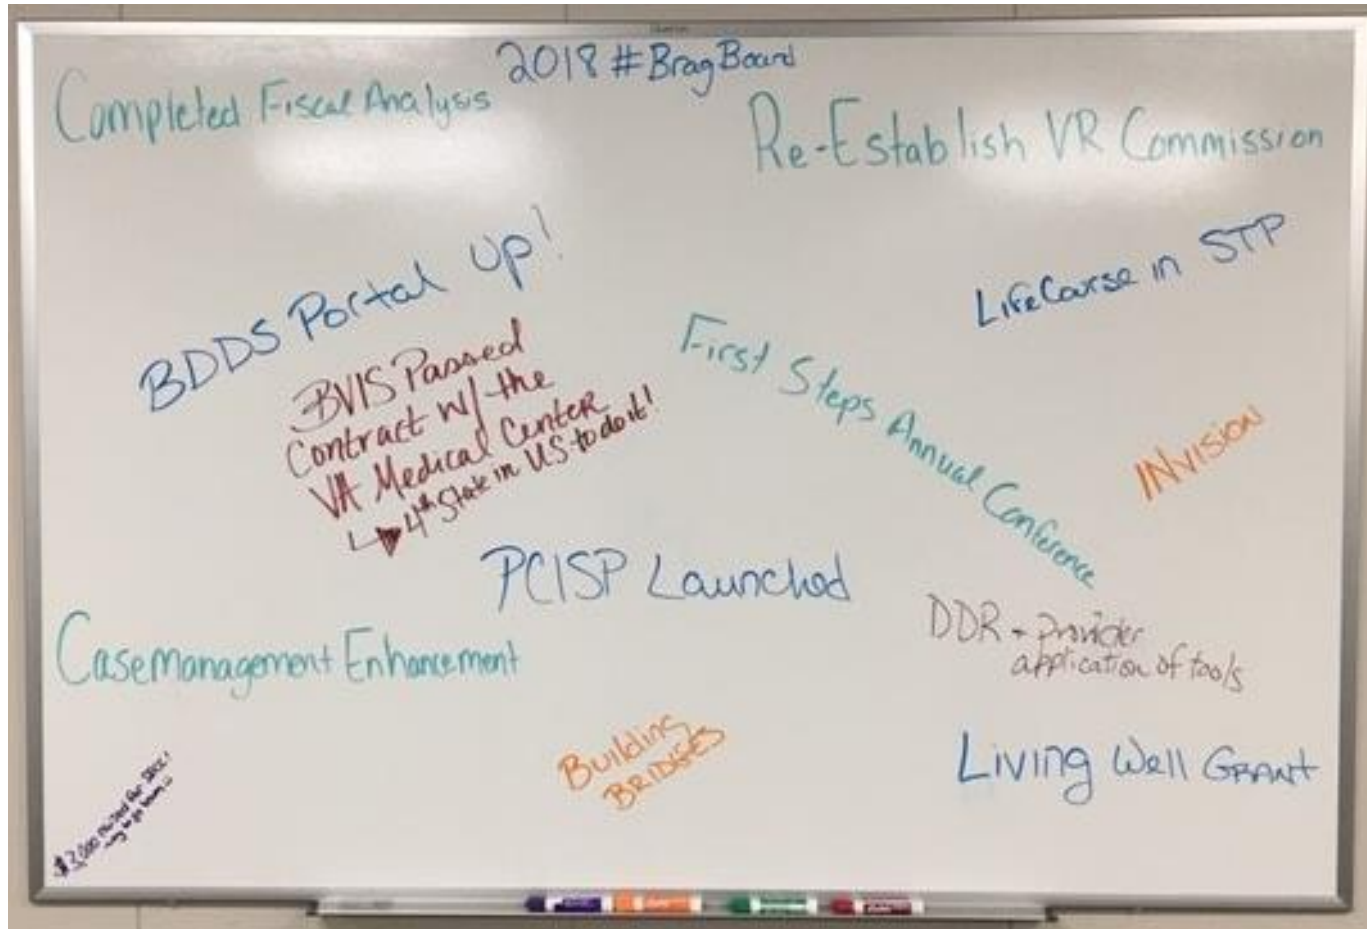 2018 #BragBoard
Completed Fiscal Analysis
Re-Establish VR Commission
BDDS Portal Up!
LifeCourse in STP
BVIS Passed
Contract w/ the
VA Medical Center
4th State in US to do it!
First Steps Annual Conference
INvision
PCISP Launched
DDR - provider
application of tools
Casemanagement Enhancement
Building
BRIDGES
Living Well GRANT
$3,000 raised for
way to go team